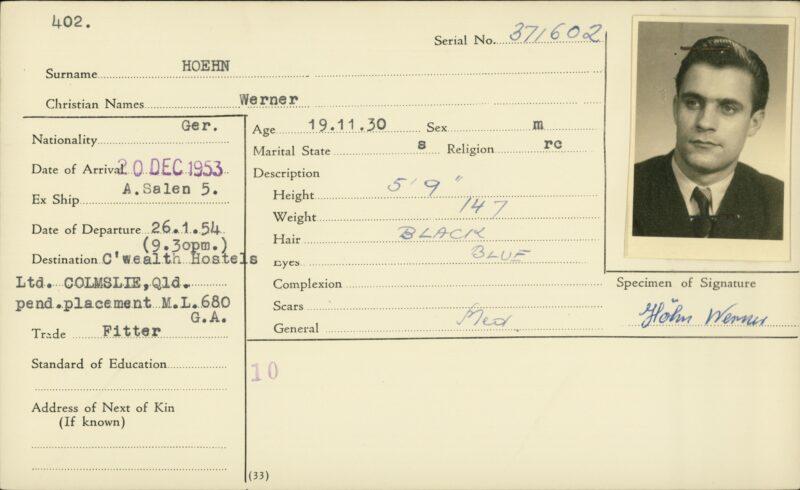 402.
Serial No. 371602
Surname HOEHN
Christian Names Werner
Nationality Ger.
Date of Arrival 20 DEC 1953
Ex Ship A.Salen 5.
Date of Departure 26.1.54
(9.30pm.)
Destination C'wealth Hostels
Ltd. COLMSLIE,Qld.
pend.placement M.L.680
G.A.
Trade Fitter
Standard of Education
Address of Next of Kin
(If known)
Age 19.11.30 Sex m
Marital State s Religion rc
Description
Height 5' 9"
Weight 147
Hair BLACK
Eyes BLUE
Complexion
Scars
General Med.
10
(33)
Specimen of Signature
Höhn Werner